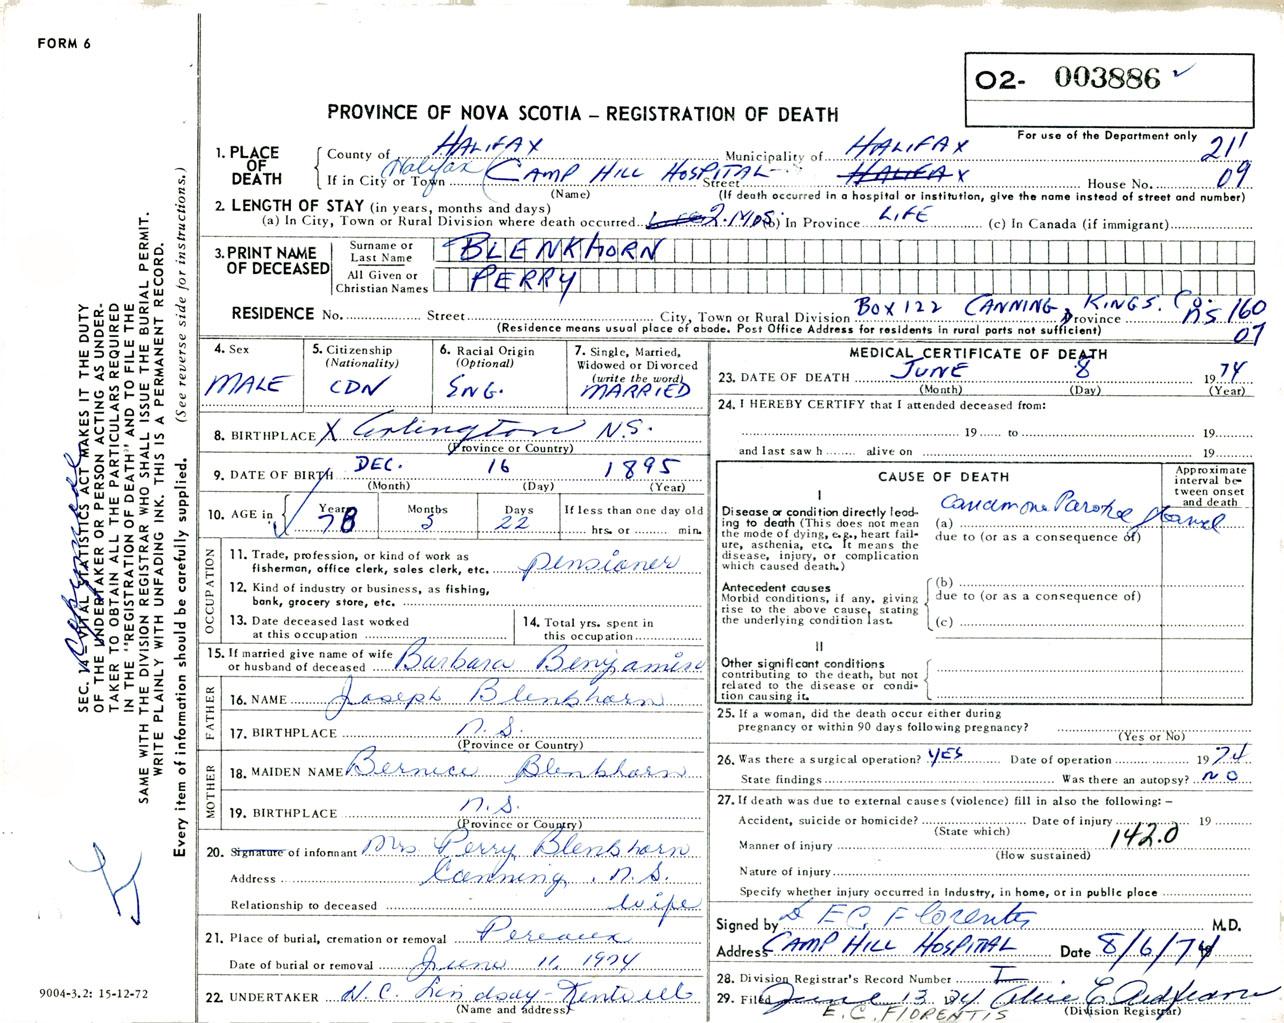 FORM 6
O2- 003886
PROVINCE OF NOVA SCOTIA – REGISTRATION OF DEATH
For use of the Department only
211
09
1. PLACE OF DEATH
County of HALIFAX Municipality of HALIFAX
If in City or Town Halifax CAMP HILL HOSPITAL Street HALIFAX House No.
(Name) (If death occurred in a hospital or institution, give the name instead of street and number)
2. LENGTH OF STAY (in years, months and days)
(a) In City, Town or Rural Division where death occurred 2 MOS. (b) In Province LIFE (c) In Canada (if immigrant)
3. PRINT NAME OF DECEASED
Surname or Last Name BLENKHORN
All Given or Christian Names PERRY
RESIDENCE No. Street City, Town or Rural Division BOX 122 CANNING, KINGS. Co. Province NS 160
07
(Residence means usual place of abode. Post Office Address for residents in rural parts not sufficient)
4. Sex MALE
5. Citizenship (Nationality) CDN
6. Racial Origin (Optional) ENG.
7. Single, Married, Widowed or Divorced (write the word) MARRIED
8. BIRTHPLACE X Arlington N.S.
(Province or Country)
9. DATE OF BIRTH DEC. 16 1895
(Month) (Day) (Year)
10. AGE in Years 78 Months 5 Days 22 If less than one day old
hrs. or min.
OCCUPATION
11. Trade, profession, or kind of work as fisherman, office clerk, sales clerk, etc. pensioner
12. Kind of industry or business, as fishing, bank, grocery store, etc.
13. Date deceased last worked at this occupation
14. Total yrs. spent in this occupation
15. If married give name of wife or husband of deceased Barbara Benjamin
FATHER
16. NAME Joseph Blenkhorn
17. BIRTHPLACE N.S.
(Province or Country)
MOTHER
18. MAIDEN NAME Bernice Blenkhorn
19. BIRTHPLACE N.S.
(Province or Country)
20. Signature of informant Mrs Perry Blenkhorn
Address Canning, N.S.
Relationship to deceased wife
21. Place of burial, cremation or removal Pereaux
Date of burial or removal June 11, 1974
22. UNDERTAKER W.C. Lindsay - Kentville
(Name and address)
MEDICAL CERTIFICATE OF DEATH
23. DATE OF DEATH JUNE 8 1974
(Month) (Day) (Year)
24. I HEREBY CERTIFY that I attended deceased from:
19 to 19
and last saw h alive on 19
CAUSE OF DEATH
Approximate interval between onset and death
I
Disease or condition directly leading to death (This does not mean the mode of dying, e.g., heart failure, asthenia, etc. It means the disease, injury, or complication which caused death.)
(a) Carcinoma Parotid gland
due to (or as a consequence of)
Antecedent causes
Morbid conditions, if any, giving rise to the above cause, stating the underlying condition last.
(b)
due to (or as a consequence of)
(c)
II
Other significant conditions contributing to the death, but not related to the disease or condition causing it.
25. If a woman, did the death occur either during pregnancy or within 90 days following pregnancy?
(Yes or No)
26. Was there a surgical operation? YES Date of operation 1974
State findings Was there an autopsy? NO
27. If death was due to external causes (violence) fill in also the following: –
Accident, suicide or homicide? Date of injury 19
(State which) 142.0
Manner of injury
(How sustained)
Nature of injury
Specify whether injury occurred in Industry, in home, or in public place
Signed by E.C. Florentis M.D.
Address CAMP HILL HOSPITAL Date 8/6/74
28. Division Registrar's Record Number
29. Filed June 13 1974
(Division Registrar)
E.C. FLORENTIS
SEC. 14 – VITAL STATISTICS ACT MAKES IT THE DUTY
OF THE UNDERTAKER OR PERSON ACTING AS UNDER-
TAKER TO OBTAIN ALL THE PARTICULARS REQUIRED
IN THE "REGISTRATION OF DEATH" AND TO FILE THE
SAME WITH THE DIVISION REGISTRAR WHO SHALL ISSUE THE BURIAL PERMIT.
WRITE PLAINLY WITH UNFADING INK. THIS IS A PERMANENT RECORD.
Every item of information should be carefully supplied. (See reverse side for instructions.)
9004-3.2: 15-12-72